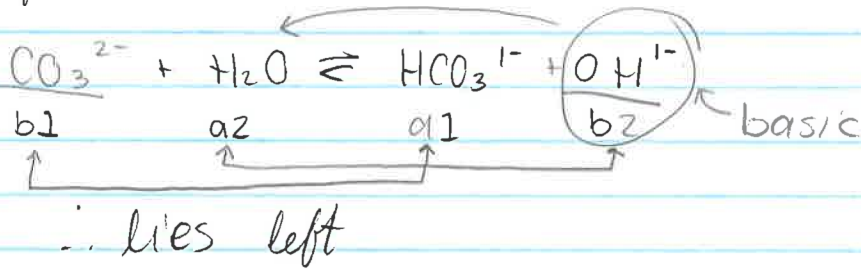 CO₃²⁻ + H₂O ⇌ HCO₃¹⁻ + OH¹⁻
b1 a2 a1 b2 basic
∴ lies left